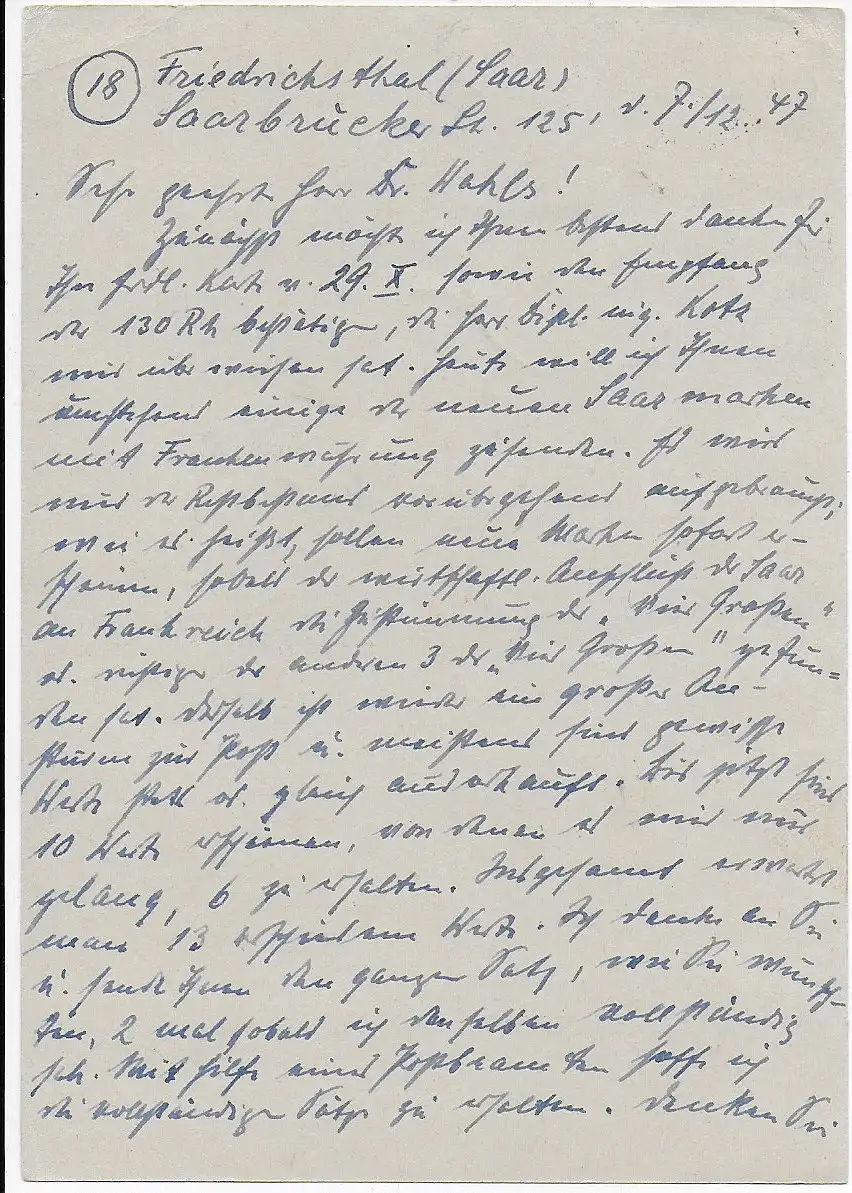 18 Friedrichsthal (Saar)
Saarbrücker St. 125, d. 7./12. 47
Sehr geehrter Herr Dr. Wahls!
Zunächst möchte ich Ihnen bestens danken für
Ihre frdl. Karte v. 29. X. sowie den Empfang
der 130 RM bestätigen, die Herr Dipl. ing. Kotz
mir überwiesen hat. Heute will ich Ihnen
umstehend einige der neuen Saarmarken
mit Frankenwährung zusenden. Es wird
nur der Restbestand vorübergehend aufgebraucht;
wie es heißt, sollen neue Marken sofort er-
scheinen, sobald der wirtschaftl. Anschluß der Saar
an Frankreich die Zustimmung der „Vier Großen"
od. richtiger der anderen 3 der „Vier Großen" gefun=
den hat. Deshalb ist wieder ein großer An-
sturm zur Post u. meistens sind gewisse
Werte stets od. gleich ausverkauft. Bis jetzt sind
10 Werte erschienen, von denen es mir nur
gelang, 6 zu erhalten. Insgesamt erwartet
man 13 verschiedene Werte. Ich denke an Sie
u. sende Ihnen den ganzen Satz, wie Sie wünsch-
ten, 2 mal sobald ich denselben vollständig
hab. Mit Hilfe eines Postbeamten hoffe ich
die vollständigen Sätze zu erhalten. Denken Sie